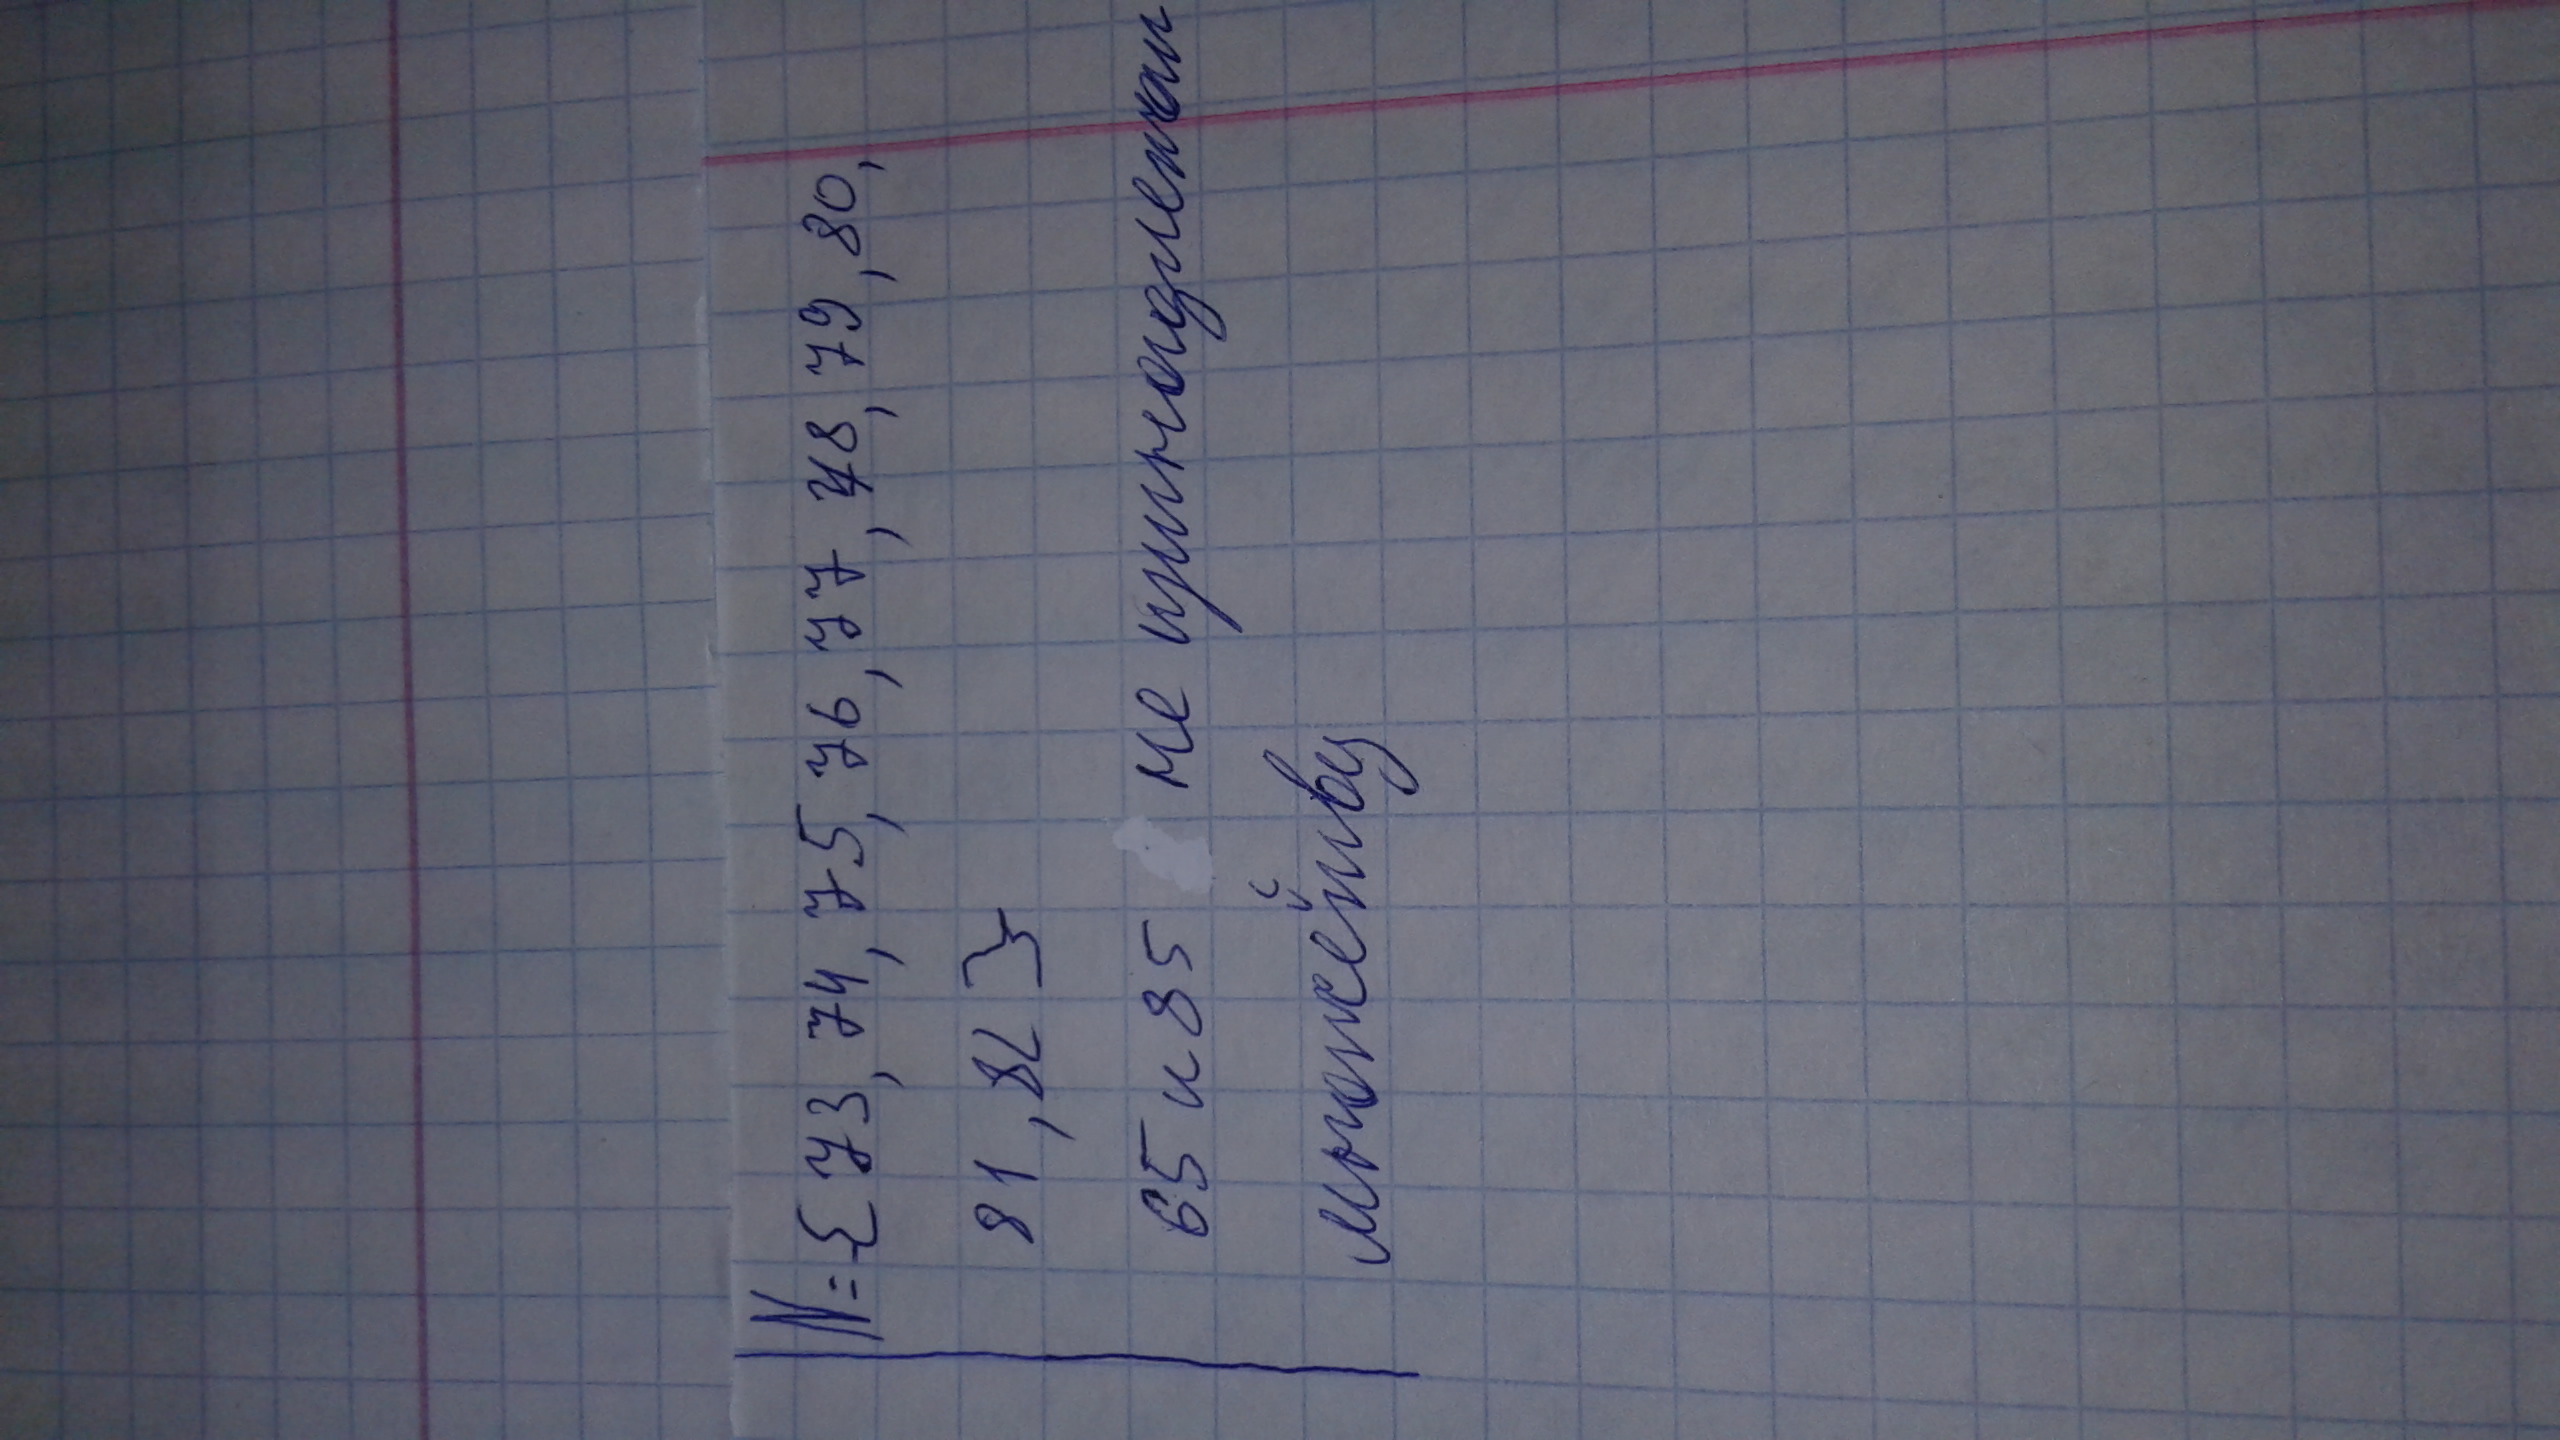 N={73, 74, 75, 76, 77, 78, 79, 80,
81, 82}
65 и 85 не принадлежат
множеству